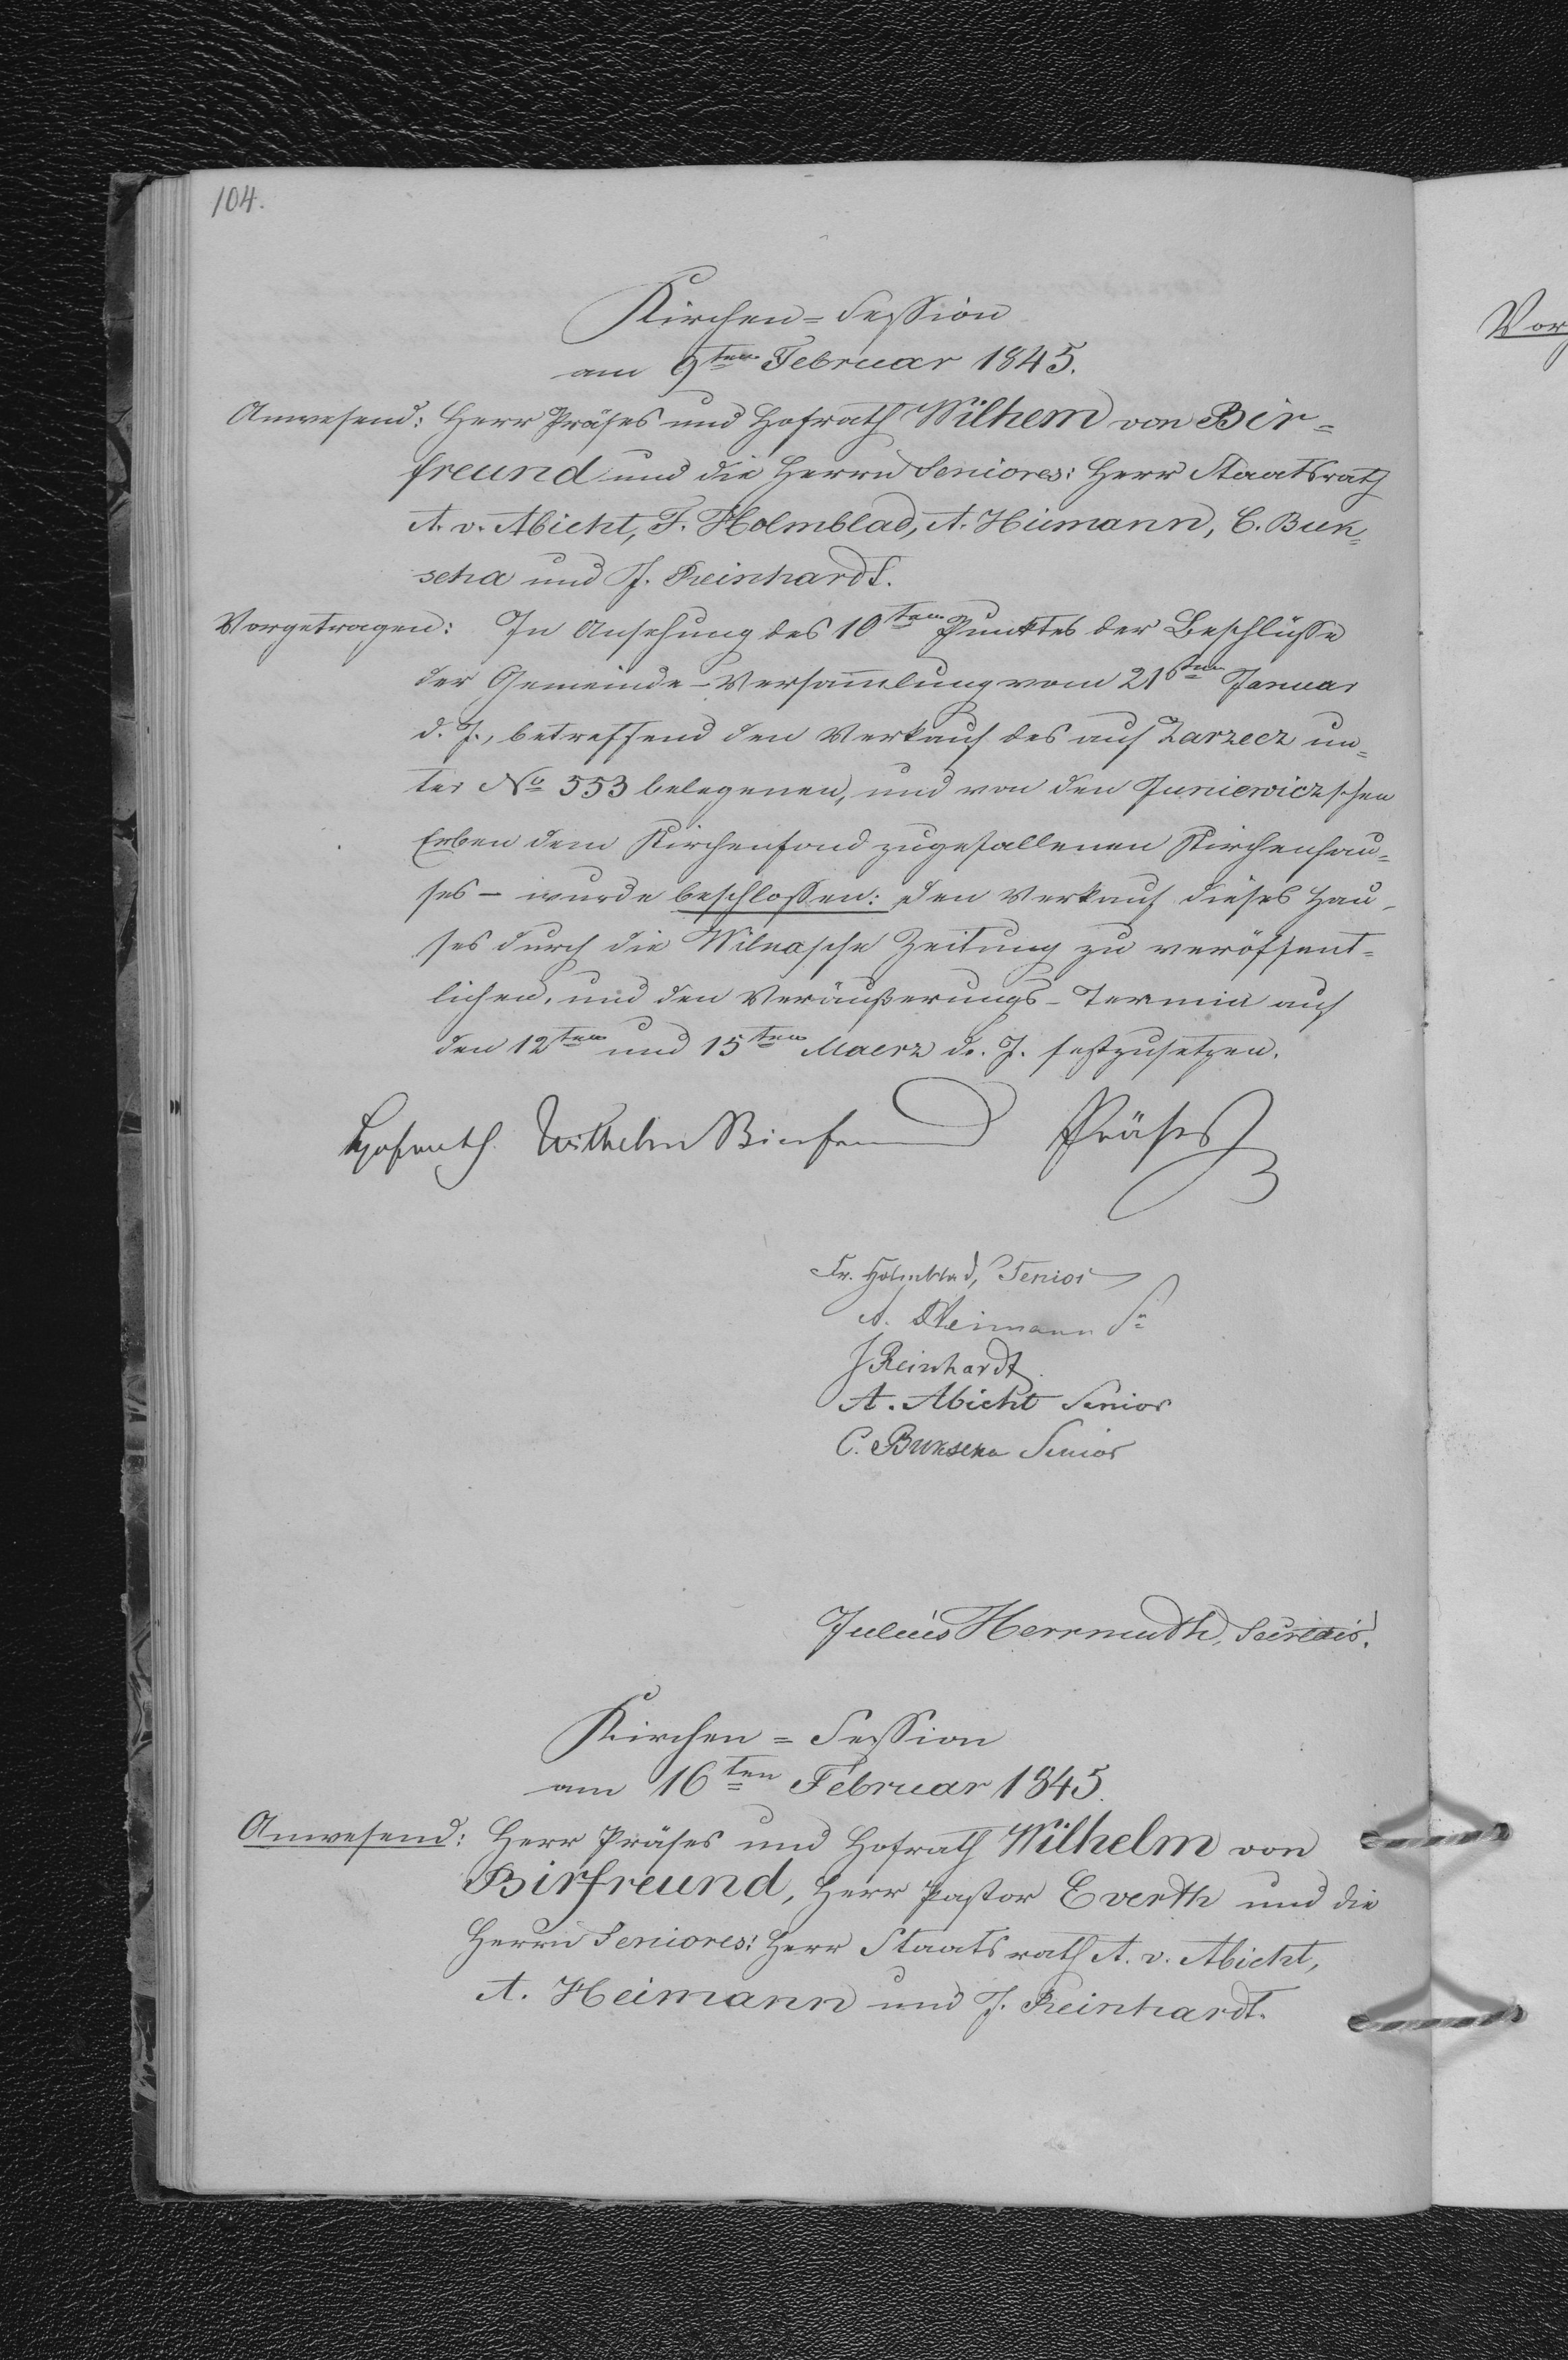 104.
Kirchen=Session
am 9ten Februar 1845.
Anwesend: Herr Präses und Hofrath Wilhem von Bir=
freund und die Herrn Seniores: Herr Staatsrath
A. v. Abicht, F. Holmblad, A. Heimann, C. Buk=
scha und J. Reinhardt.
Vorgetragen: In Ansehung des 10ten Punktes der Beschlüsse
der Gemeinde-Versammlung vom 21sten Januar
d. J., betreffend den Verkauf des auf Zarzecz un=
ter No 553 belegenen, und von den Juniewiczschen
Erben dem Kirchenfond zugefallenen Kirchenhau=
ses – wurde beschlossen: den Verkauf dieses Hau-
ses durch die Wilnasche Zeitung zu veröffent=
lichen, und den Veräußerungs-Termin auf
den 12ten und 15ten Maerz d. J. festzusetzen.
Hofrath Wilhelm Birfreund Präses
Fr. Holmblad, Senior
A. Heimann Sr
J Reinhardt.
A. Abicht Senior
C. Bukscha Senior
Julius Herrmuth, Secretair.
Kirchen=Session
am 16ten Februar 1845.
Anwesend: Herr Präses und Hofrath Wilhelm von
Birfreund, Herr Pastor Everth und die
Herrn Seniores: Herr Staatsrath A. v. Abicht,
A. Heimann und J. Reinhardt.
Vor